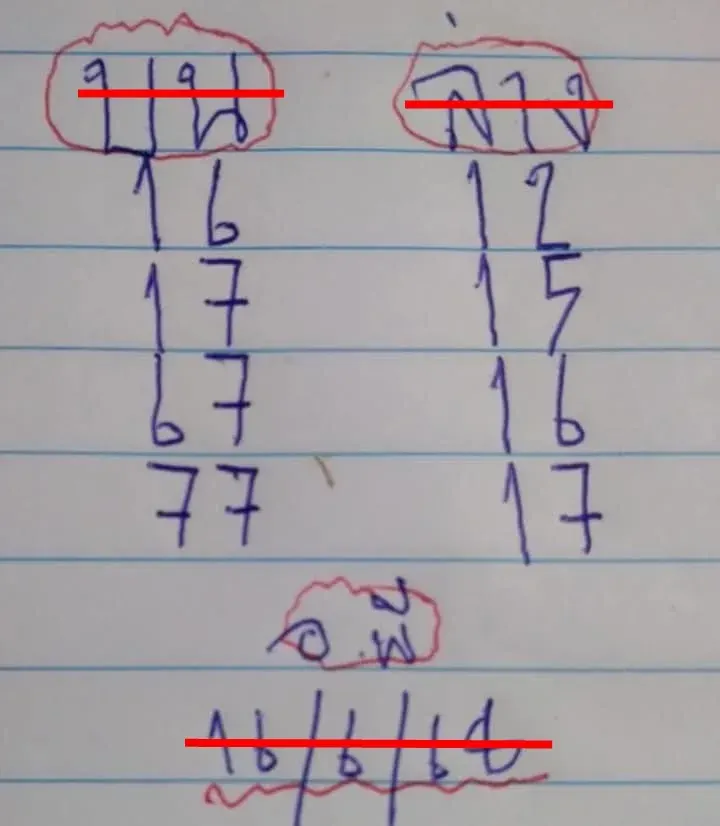 บน ล่าง
16 12
17 15
67 16
77 17
16/6/68